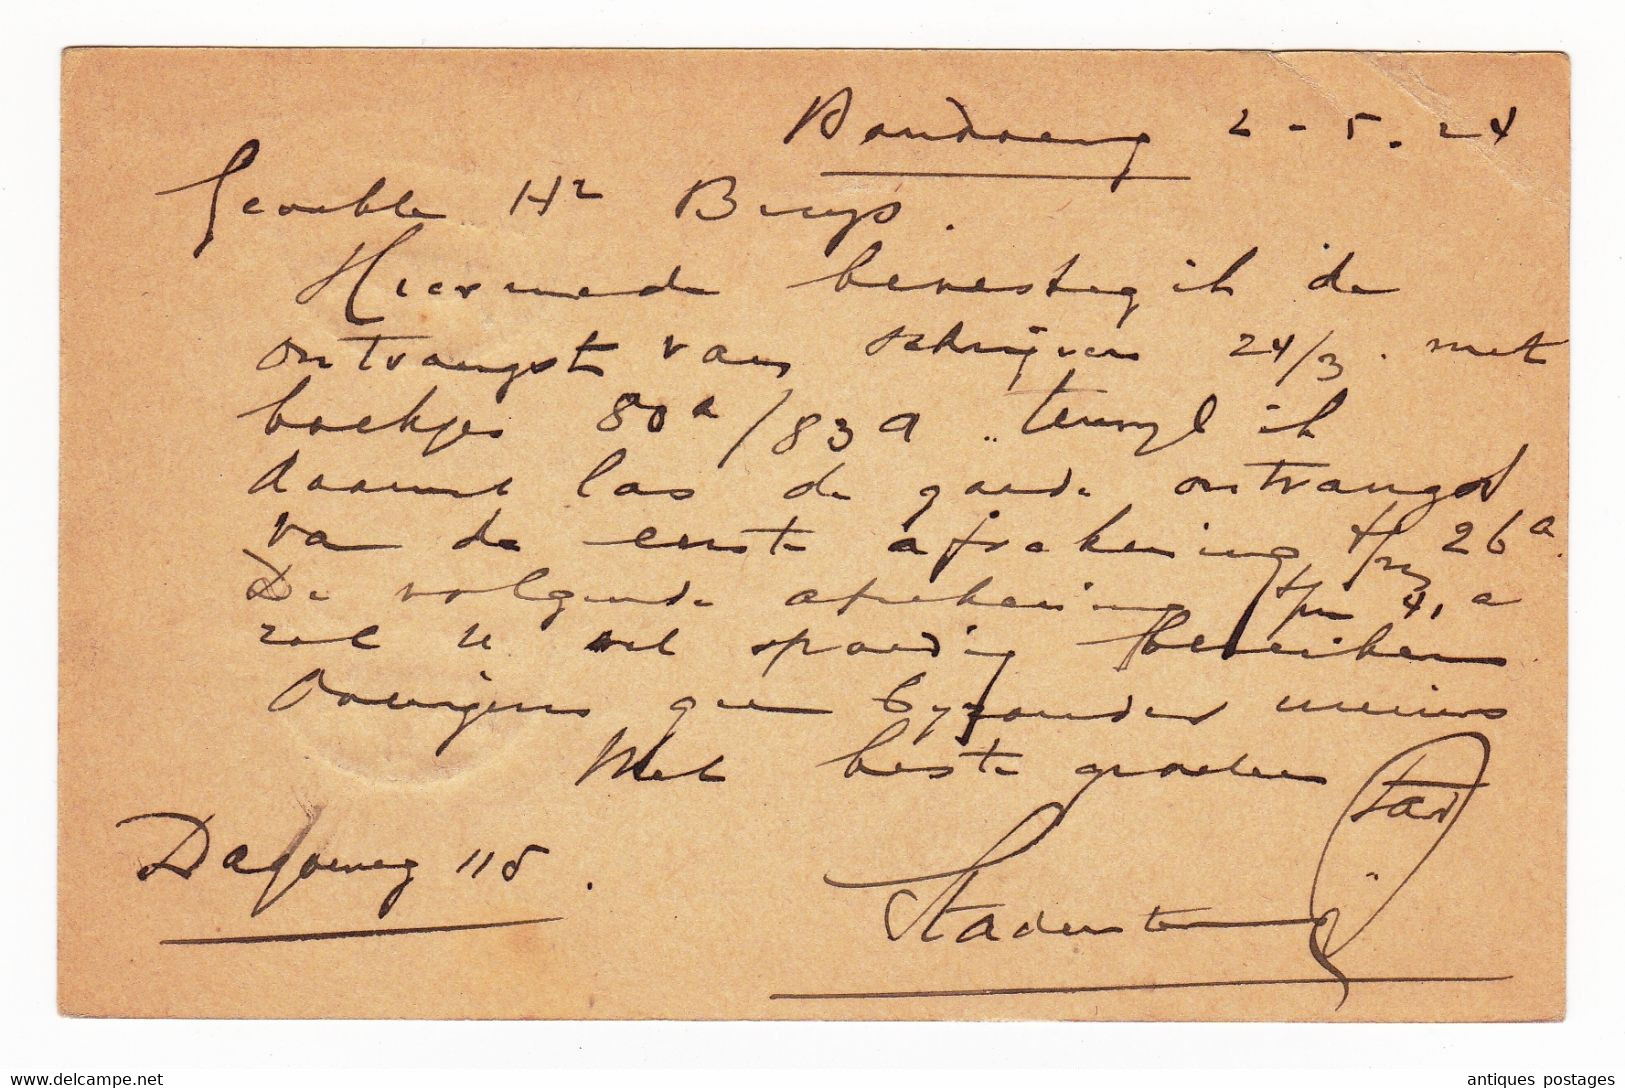 Bandoeng 2-5.24
Geachte Hr Buys.
Hiermede bevestig ik de
ontvangst van schrijven 24/3. met
boekjes 80a/83a terwyl ik
daaruit las de goede ontvangst
van de eerste afrekening t/m 26a.
De volgende afrekening t/m 41a
zal u wel spoedig bereiken
Overigens geen byzonder nieuws
Met beste groeten
Dagoweg 115.
www.delcampe.net
antiques postages